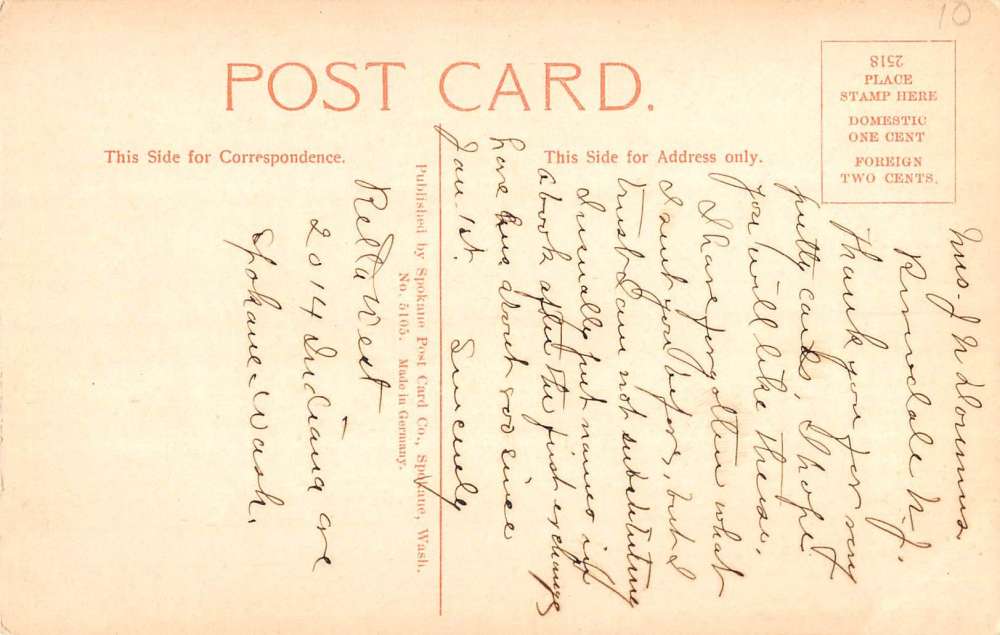 10
POST CARD.
This Side for Correspondence.
This Side for Address only.
2518
PLACE
STAMP HERE
DOMESTIC
ONE CENT
FOREIGN
TWO CENTS.
Published by Spokane Post Card Co., Spokane, Wash.
No. 5105. Made in Germany.
Mrs. J N
N.J.
Thank you for very
pretty cards, I hope
you will like these.
I have forgotten what
I sent you before, but I
trust I am not substituting
I usually put names in
a book after the first exchange
have about 500 since
Jan 1st. Sincerely
Retta West
2014 Indiana ave
Spokane-Wash.